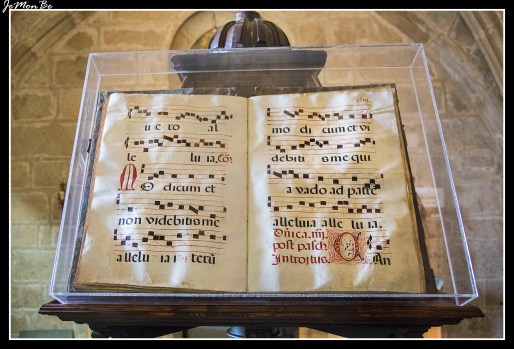 JeMonBe
ue ro . al
le lu ia. Cō.
M O dicum et
non videbitis me
allelu ia i terū
mo di cum et vi
debitis me qui
a vado ad patrē
alleluia alle lu ia.
Dñica. iij.
post pasch
Introitus. An